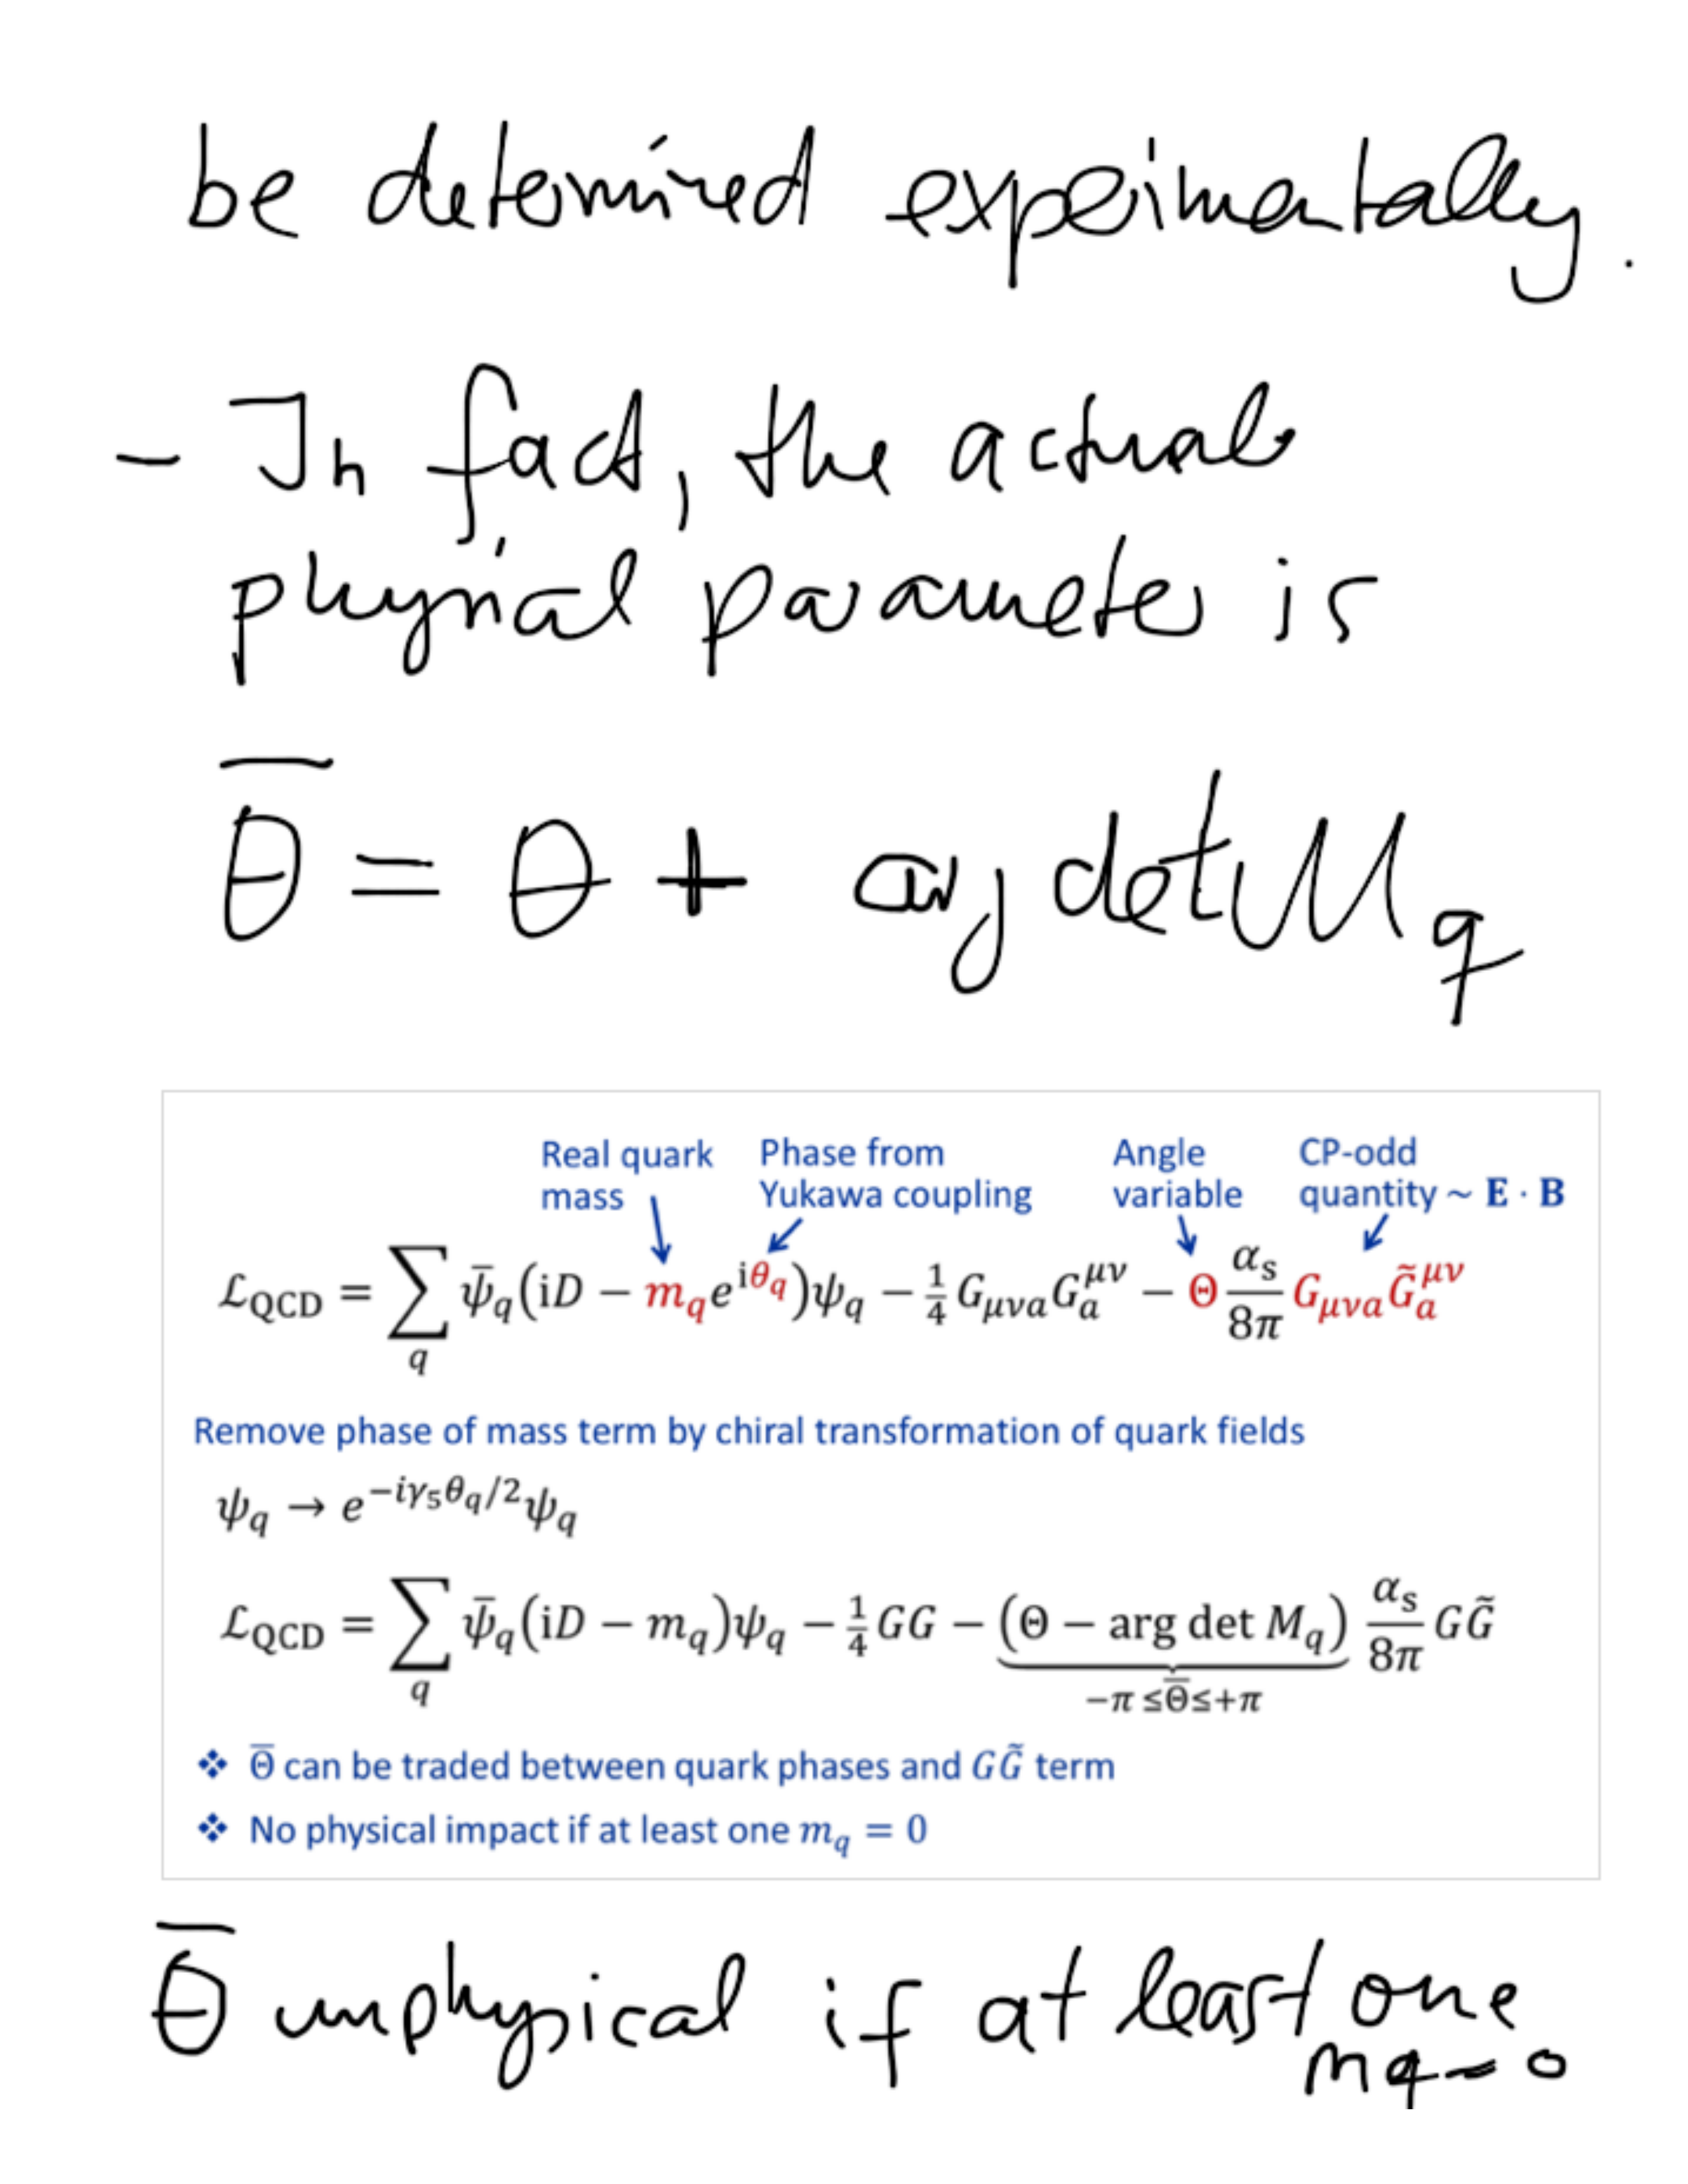 be determined experimentally.
- In fact, the actual
physical parameter is
θ̅ = θ + arg det M_q
Real quark mass
Phase from Yukawa coupling
Angle variable
CP-odd quantity ~ E · B
ℒ_QCD = ∑_q ψ̄_q(iD − m_q e^{iθ_q})ψ_q − ¼ G_{μνa}G_a^{μν} − Θ α_s/8π G_{μνa}G̃_a^{μν}
Remove phase of mass term by chiral transformation of quark fields
ψ_q → e^{−iγ_5θ_q/2}ψ_q
ℒ_QCD = ∑_q ψ̄_q(iD − m_q)ψ_q − ¼ GG − (Θ − arg det M_q) α_s/8π GG̃
−π ≤ Θ̅ ≤ +π
❖ Θ̅ can be traded between quark phases and GG̃ term
❖ No physical impact if at least one m_q = 0
θ̅ unphysical if at least one
m_q = 0